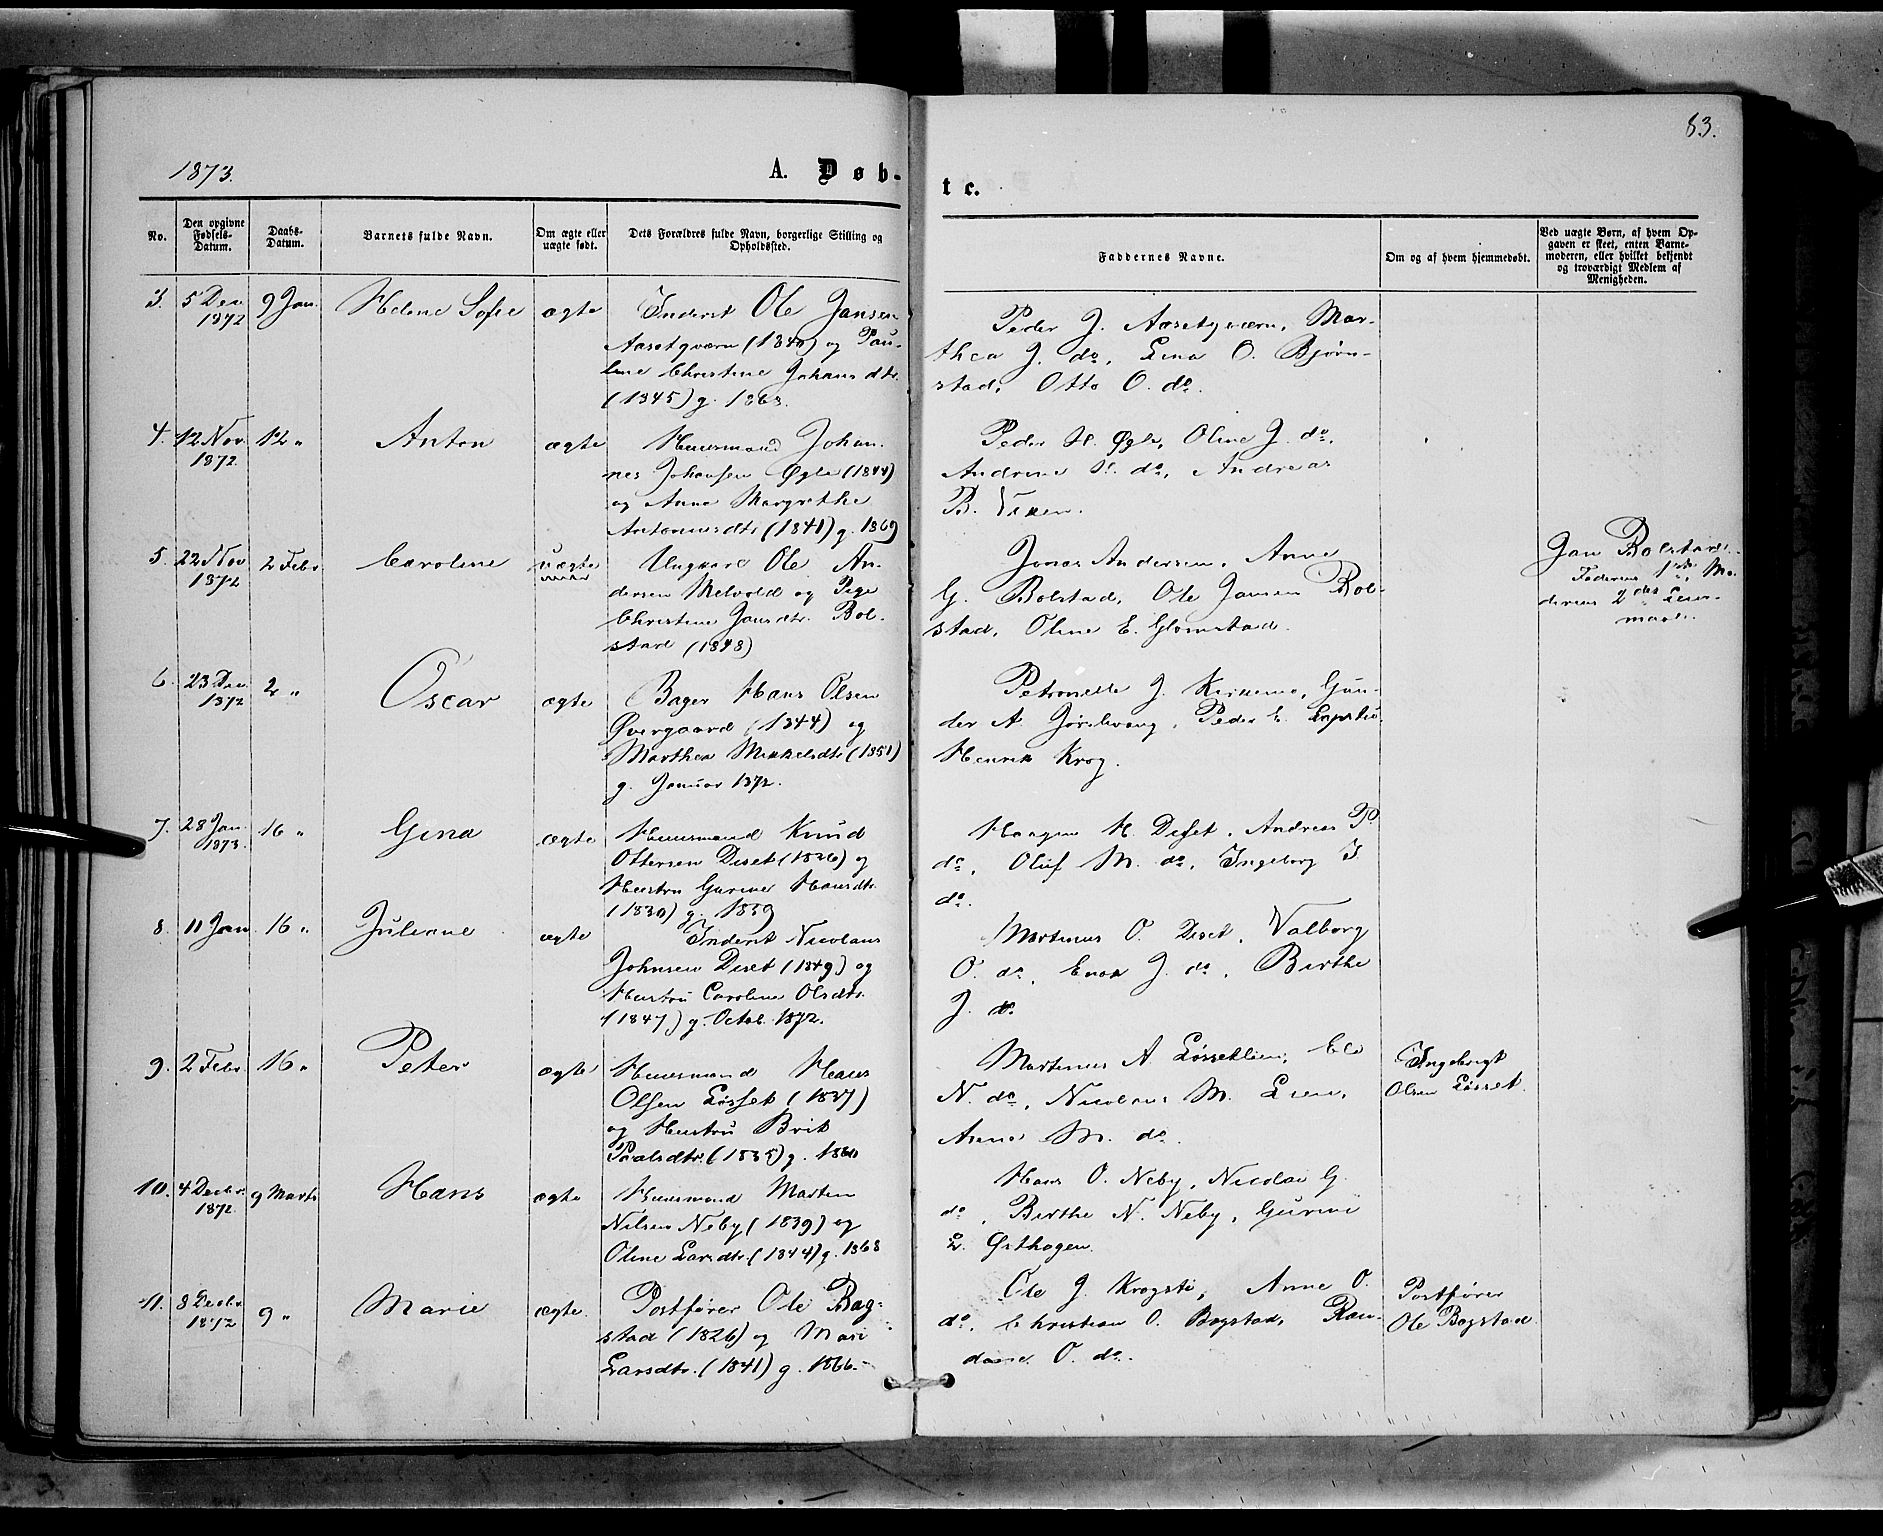 83.
1873.
A. Døb-
te.
No.
Den opgivne Fødsels-Datum.
Daabs-Datum.
Barnets fulde Navn.
Om ægte eller uægte født.
Dets Forældres fulde Navn, borgerlige Stilling og Opholdssted.
Faddernes Navne.
Om og af hvem hjemmedøbt.
Ved uægte Børn, af hvem Opgaven er skeet, enten Barnemoderen, eller hvilket bekjendt og troværdigt Medlem af Menigheden.
3. 5 Dec 1872 9 Jan. Helene Sofie ægte
Inderst Ole Jansen
Aasetqværn (1840) og Pau-
line Christine Johansdtr.
(1845) g. 1868.
Peder J. Aasetqværn, Mar-
thea J. do, Lina O. Bjørn-
stad, Otto O. do.
4. 12 Nov. 1872 12 " Anton ægte
Huusmand Johan-
nes Johansen Øgle (1844)
og Anne Margrethe
Antonnesdtr (1841) g. 1869
Peder H. Øgle, Oline J. do.
Andrine H. do, Andreas
B.
5. 22 Nov 1872 2 Febr Caroline uægte
Ungkarl Ole An-
dersen Melvold og Pige
Christine Jansdtr. Bol-
stad (1848)
Jonas Andersen, Anne
G. Bolstad, Ole Jansen Bol-
stad, Oline E. Glomstad.
Jan Bolstad.
Faderens 1ste, Mo-
derens 2det Leier-
maal.
6. 23 Dec. 1872 2 " Oscar ægte
Bager Hans Olsen
Øvergaard (1844) og
Marthea Mikkelsdtr (1851)
g. Januar 1872.
Petronelle J. Gun-
der A. Peder E.
Henrik Krog.
7. 28 Jan. 1873. 16 " Gina ægte
Huusmand Knud
Ottersen Diset (1826) og
Hustru Gurine Hansdtr.
(1830) g. 1859
Haagen H. Diset, Andreas P.
do, Oluf M. do, Ingeborg I.
do.
8. 11 Jan 16 " Juliane ægte
Inderst Nicolaus
Johnsen Diset (1849) og
Hustru Caroline Olsdtr.
(1847) g. Octob. 1872.
Martinus O. Diset, Valborg
O. do, J. do, Birthe
J. do
9. 2 Febr 16 " Peter ægte
Huusmand Hans
Olsen Løsset (1837)
og Hustru Brit
Paalsdtr. (1835) g. 1860
Martinus A. Løssetlien,
N. do, Nicolaus M. Lien,
Anne M. do.
Ingebrigt
Olsen Løsset.
10. 4 Decbr. 1872 9 Marts Hans ægte
Huusmand Martin
Nilsen Neby (1839) og
Oline Larsdtr. (1844) g. 1868
Hans O. Neby, Nicolai G.
do, Birthe N. Neby, Gurine
L. Østhagen.
11. 8 Decbr. 1872 9 " Marie ægte.
Postfører Ole Bag-
stad (1826) og Mari
Larsdtr. (1841) g. 1866.
Ole J. Krogsti, Anne O.
do, Christian O. Bagstad, Ran-
O. do.
Postfører
Ole Bagstad